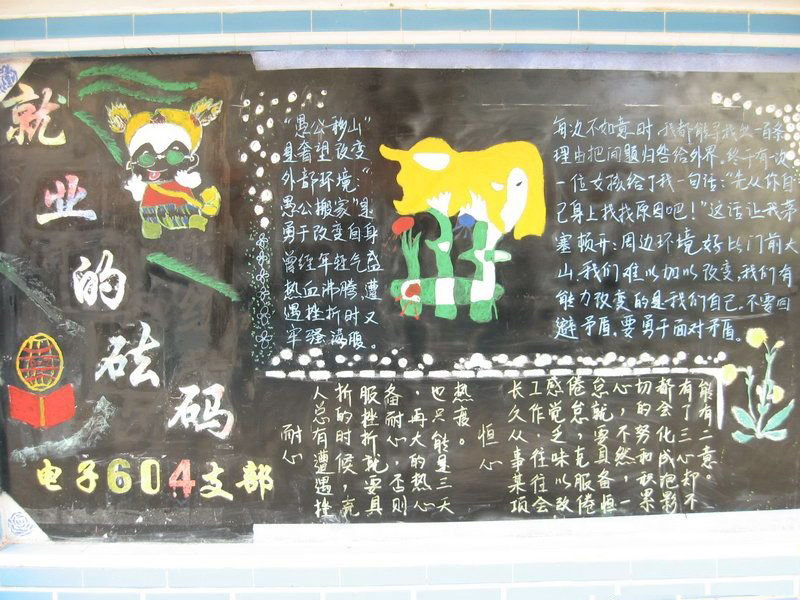 就业的砝码
电子604支部
"愚公移山"
是奢望改变
外部环境;"
愚公搬家"是
勇于改变自身
曾经年轻气盛
热血沸腾,遭
遇挫折时又
牢骚满腹。
每边不如意时,我都能寻找出一百条
理由把问题归咎给外界。终于有一次
一位女孩给了我一句话:"先从你自
己身上找找原因吧!"这话让我茅
塞顿开:周边环境好比门前大
山,我们难以加以改变,我们有
能力改变的是我们自己.不要回
避矛盾,要勇于面对矛盾。
恒心
长久从事某项
工作,往往会
感觉乏味以致
倦怠,克服倦
怠就要具备恒
心,不然,一
切的努和秋果
都会化成泡影
有了三心却不
能有二意。
耐心
人总有遭遇挫
折的时候,克
服挫折就要具
备耐心,否则
,再大的热心
也只能是三天
热度。